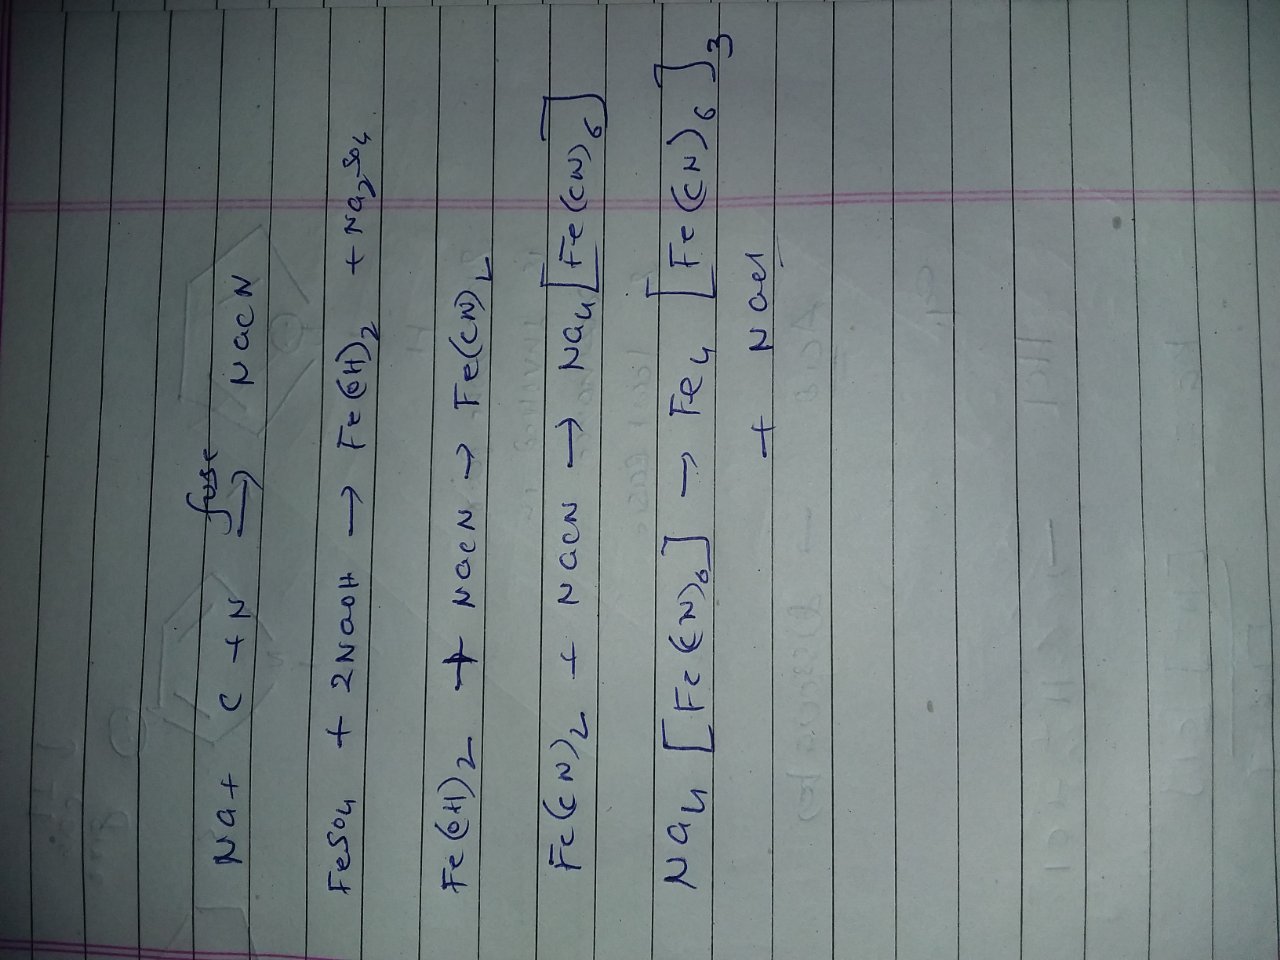 Na + C + N fuse → NaCN
FeSO4 + 2NaOH → Fe(OH)2 + Na2SO4
Fe(OH)2 + NaCN → Fe(CN)2
Fe(CN)2 + NaCN → Na4[Fe(CN)6]
Na4[Fe(CN)6] → Fe4[Fe(CN)6]3
+ NaCl